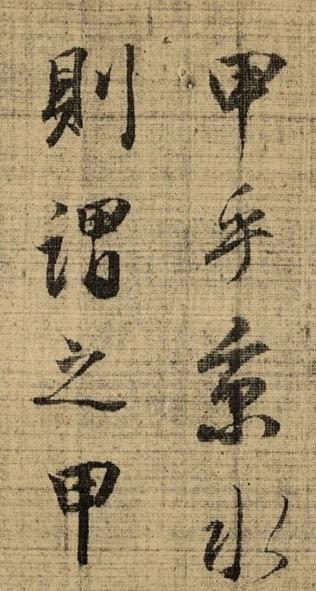 甲乎秉水
則謂之甲